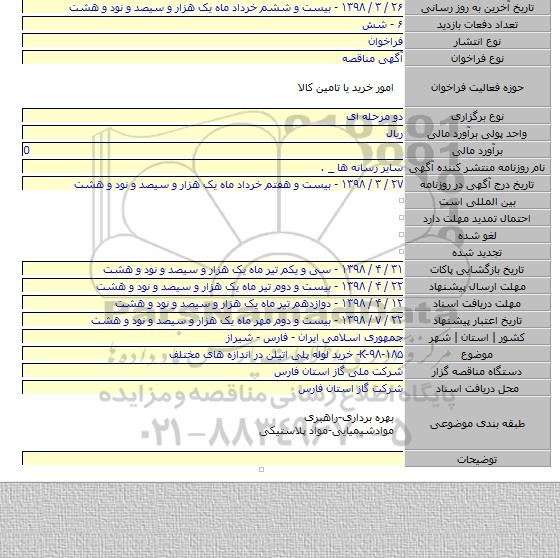 تاریخ آخرین به روز رسانی ۲۶ / ۳ / ۱۳۹۸ - بیست و ششم خرداد ماه یک هزار و سیصد و نود و هشت
تعداد دفعات بازدید ۶ - شش
نوع انتشار فراخوان
نوع فراخوان آگهی مناقصه
حوزه فعالیت فراخوان امور خرید با تامین کالا
نوع برگزاری دو مرحله ای
واحد پولی برآورد مالی ریال
برآورد مالی 0
نام روزنامه منتشر کننده آگهی سایر رسانه ها _ .
تاریخ درج آگهی در روزنامه ۲۷ / ۳ / ۱۳۹۸ - بیست و هفتم خرداد ماه یک هزار و سیصد و نود و هشت
بین المللی است
احتمال تمدید مهلت دارد
لغو شده
تجدید شده
تاریخ بازگشایی پاکات ۳۱ / ۴ / ۱۳۹۸ - سی و یکم تیر ماه یک هزار و سیصد و نود و هشت
مهلت ارسال پیشنهاد ۲۲ / ۴ / ۱۳۹۸ - بیست و دوم تیر ماه یک هزار و سیصد و نود و هشت
مهلت دریافت اسناد ۱۲ / ۴ / ۱۳۹۸ - دوازدهم تیر ماه یک هزار و سیصد و نود و هشت
تاریخ اعتبار پیشنهاد ۲۲ / ۷ / ۱۳۹۸ - بیست و دوم مهر ماه یک هزار و سیصد و نود و هشت
کشور | استان | شهر جمهوری اسلامی ایران - فارس - شیراز
موضوع K-۹۸-۱۸۵- خرید لوله پلی اتیلن در اندازه های مختلف
دستگاه مناقصه گزار شرکت ملی گاز استان فارس
محل دریافت اسناد شرکت گاز استان فارس
طبقه بندی موضوعی بهره برداری-راهبری
موادشیمیایی-مواد پلاستیکی
توضیحات
ParsNamadData
پایگاه اطلاع رسانی مناقصه و مزایده
۰۲۱-۸۸۳۴۹۶۷۰-۵